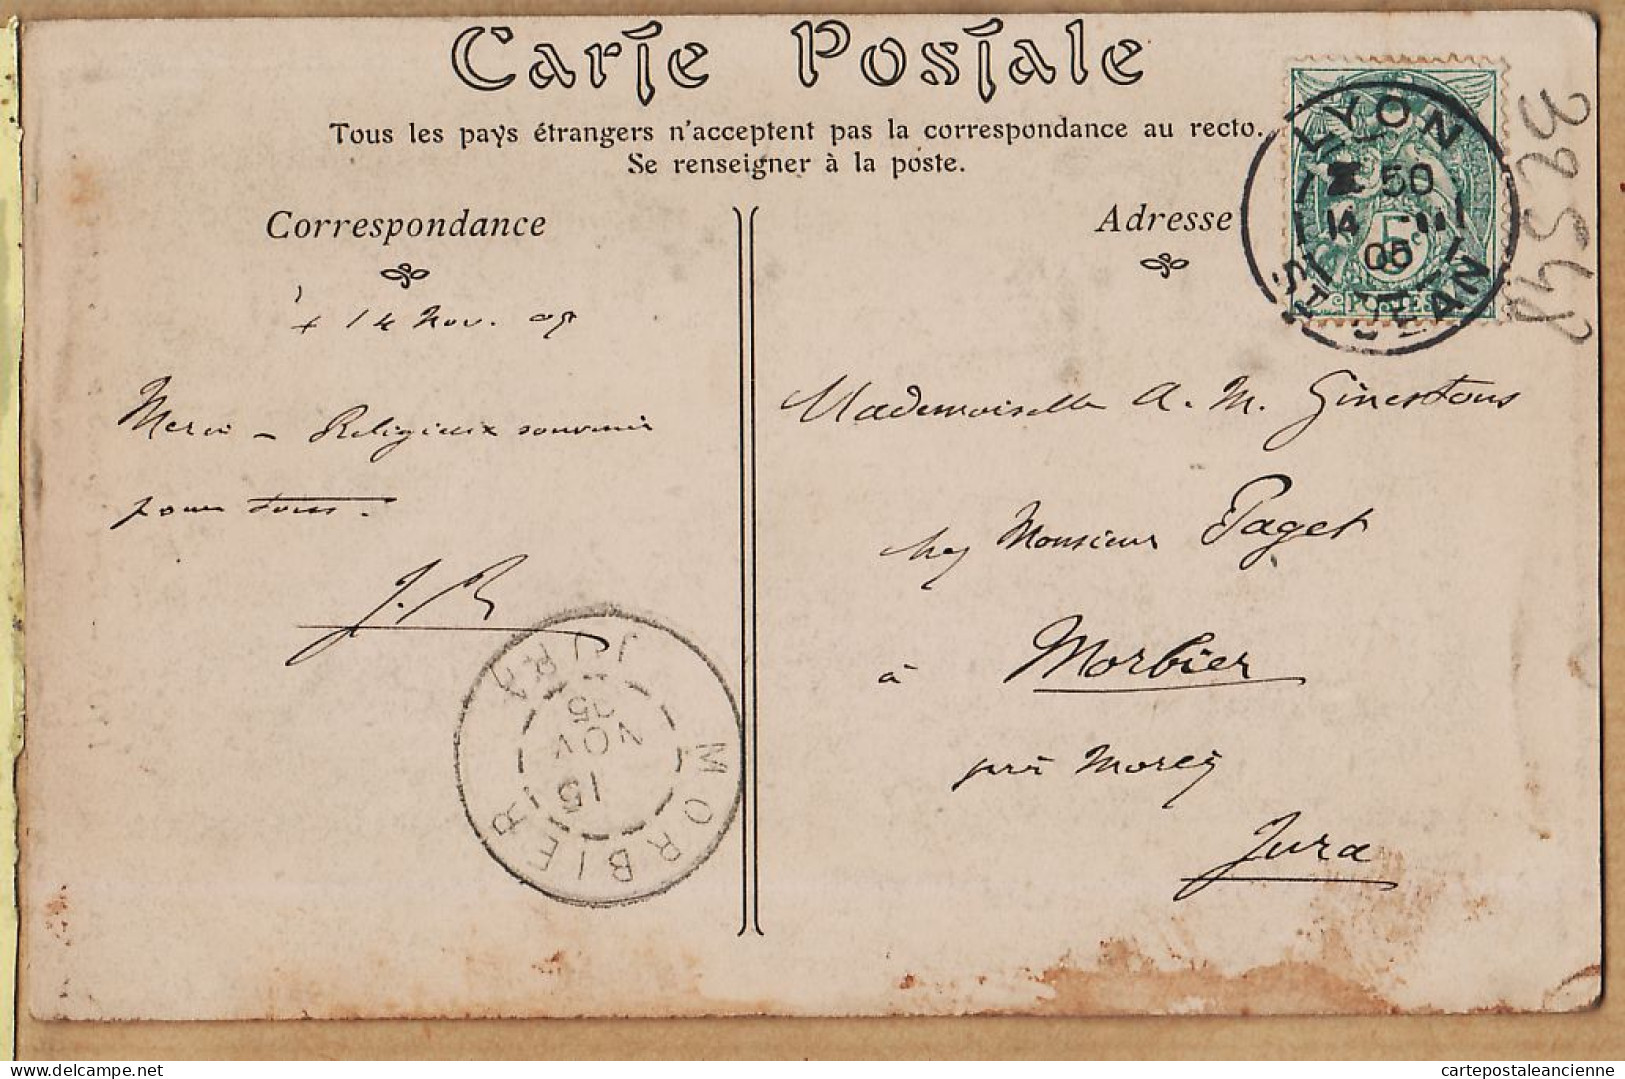 Carte Postale
Tous les pays étrangers n'acceptent pas la correspondance au recto.
Se renseigner à la poste.
Correspondance
+ 14 Nov. 05
Merci - Religieux souvenir
pour tous.
J. R
MORBIER
JURA
15
NOV
05
Adresse
LYON
50
14
05
ST JEAN
5c
POSTES
32548
Mademoiselle A. M. Ginestous
chez Monsieur Paget
à Morbier
près Morez
Jura
cartepostaleancienne.com